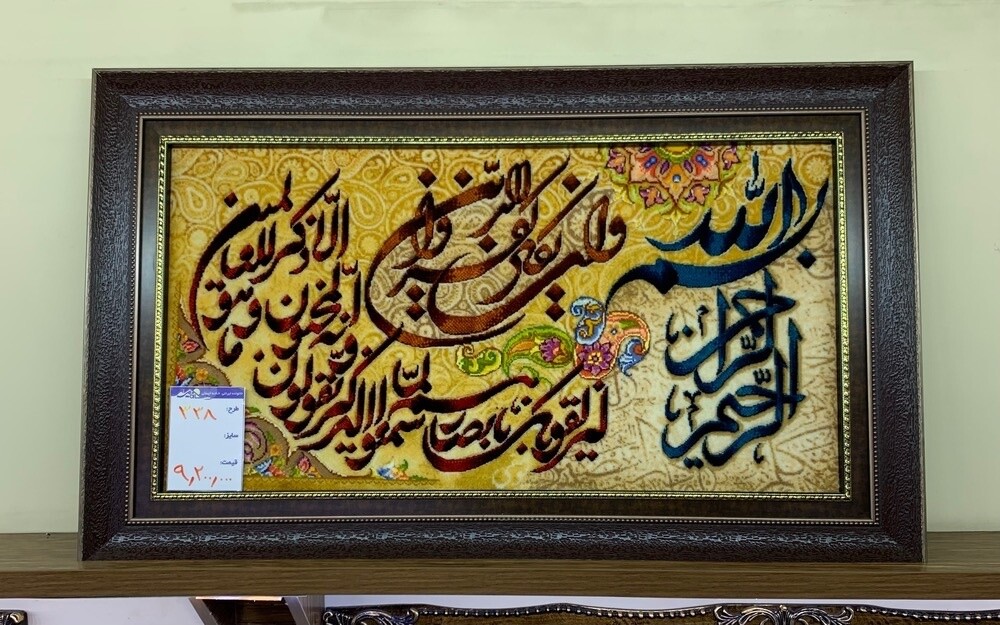 بسم الله
الرحمن
الرحیم
وان یکاد الذین کفروا
لیزلقونک بابصارهم لما سمعوا الذکر
ویقولون انه لمجنون وما هو
الا ذکر للعالمین
طرح: ۲۳۸
سایز:
قیمت:
۹٫۲۰۰٫۰۰۰